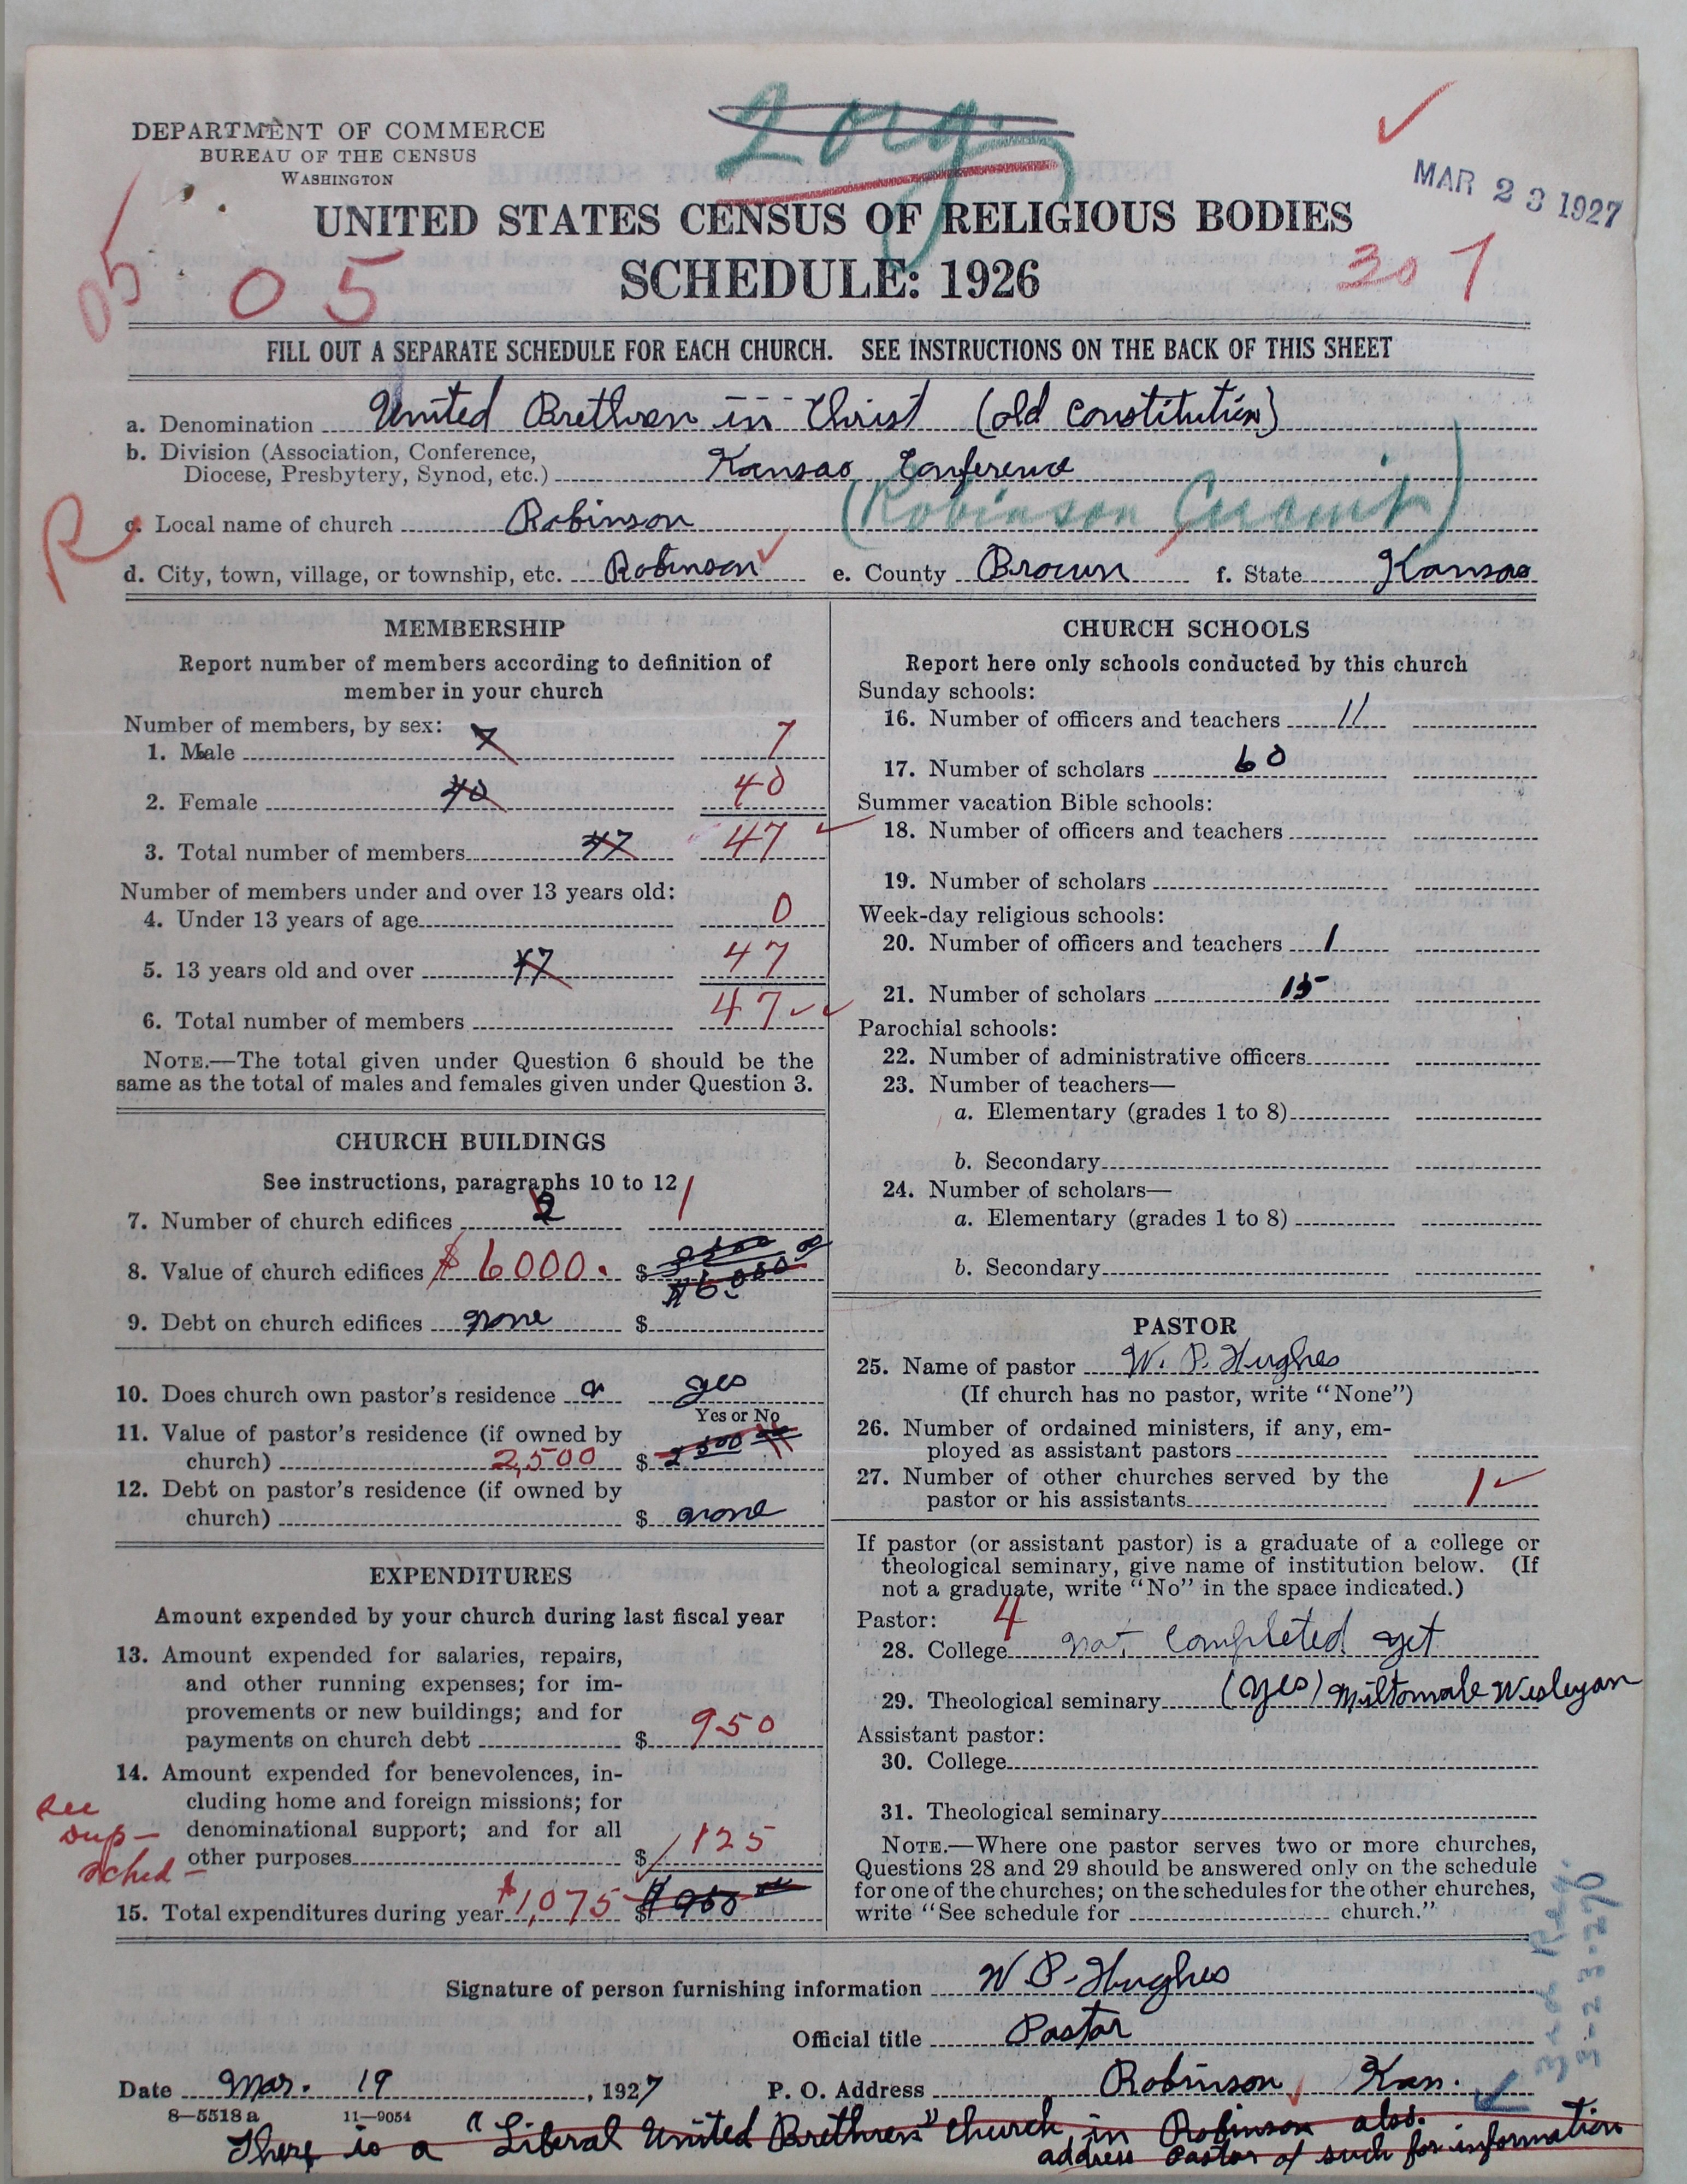 2 org.
DEPARTMENT OF COMMERCE
BUREAU OF THE CENSUS
WASHINGTON
MAR 23 1927
UNITED STATES CENSUS OF RELIGIOUS BODIES
SCHEDULE: 1926
05
05
307
FILL OUT A SEPARATE SCHEDULE FOR EACH CHURCH. SEE INSTRUCTIONS ON THE BACK OF THIS SHEET
a. Denomination United Brethren in Christ (old constitution)
b. Division (Association, Conference,
Diocese, Presbytery, Synod, etc.) Kansas Conference
R
c. Local name of church Robinson (Robinson Circuit)
d. City, town, village, or township, etc. Robinson e. County Brown f. State Kansas
MEMBERSHIP
Report number of members according to definition of
member in your church
Number of members, by sex:
1. Male 7 7
2. Female 40 40
3. Total number of members 47 47
Number of members under and over 13 years old:
4. Under 13 years of age 0
5. 13 years old and over 47 47
6. Total number of members 47
NOTE.—The total given under Question 6 should be the
same as the total of males and females given under Question 3.
CHURCH BUILDINGS
See instructions, paragraphs 10 to 12
7. Number of church edifices 2 1
8. Value of church edifices $6000. $
$6000
9. Debt on church edifices none $
10. Does church own pastor's residence yes
Yes or No
11. Value of pastor's residence (if owned by
church) 2,500 $ 2500 00
12. Debt on pastor's residence (if owned by
church) $ none
EXPENDITURES
Amount expended by your church during last fiscal year
13. Amount expended for salaries, repairs,
and other running expenses; for im-
provements or new buildings; and for
payments on church debt $ 950
14. Amount expended for benevolences, in-
cluding home and foreign missions; for
denominational support; and for all
other purposes $ 125
see
sup-
sched-
15. Total expenditures during year $1,075 $ 950
CHURCH SCHOOLS
Report here only schools conducted by this church
Sunday schools:
16. Number of officers and teachers 11
17. Number of scholars 60
Summer vacation Bible schools:
18. Number of officers and teachers
19. Number of scholars
Week-day religious schools:
20. Number of officers and teachers 1
21. Number of scholars 15
Parochial schools:
22. Number of administrative officers
23. Number of teachers—
a. Elementary (grades 1 to 8)
b. Secondary
24. Number of scholars—
a. Elementary (grades 1 to 8)
b. Secondary
PASTOR
25. Name of pastor W. P. Hughes
(If church has no pastor, write "None")
26. Number of ordained ministers, if any, em-
ployed as assistant pastors
27. Number of other churches served by the
pastor or his assistants 1
If pastor (or assistant pastor) is a graduate of a college or
theological seminary, give name of institution below. (If
not a graduate, write "No" in the space indicated.)
Pastor: 4
28. College not completed yet
29. Theological seminary (yes) Miltonvale Wesleyan
Assistant pastor:
30. College
31. Theological seminary
NOTE.—Where one pastor serves two or more churches,
Questions 28 and 29 should be answered only on the schedule
for one of the churches; on the schedules for the other churches,
write "See schedule for church."
Signature of person furnishing information W. P. Hughes
Official title Pastor
Date Mar. 19, 1927 P. O. Address Robinson Kan.
8—5518 a 11—9054
There is a "Liberal United Brethren" Church in Robinson also.
address Pastor of such for information